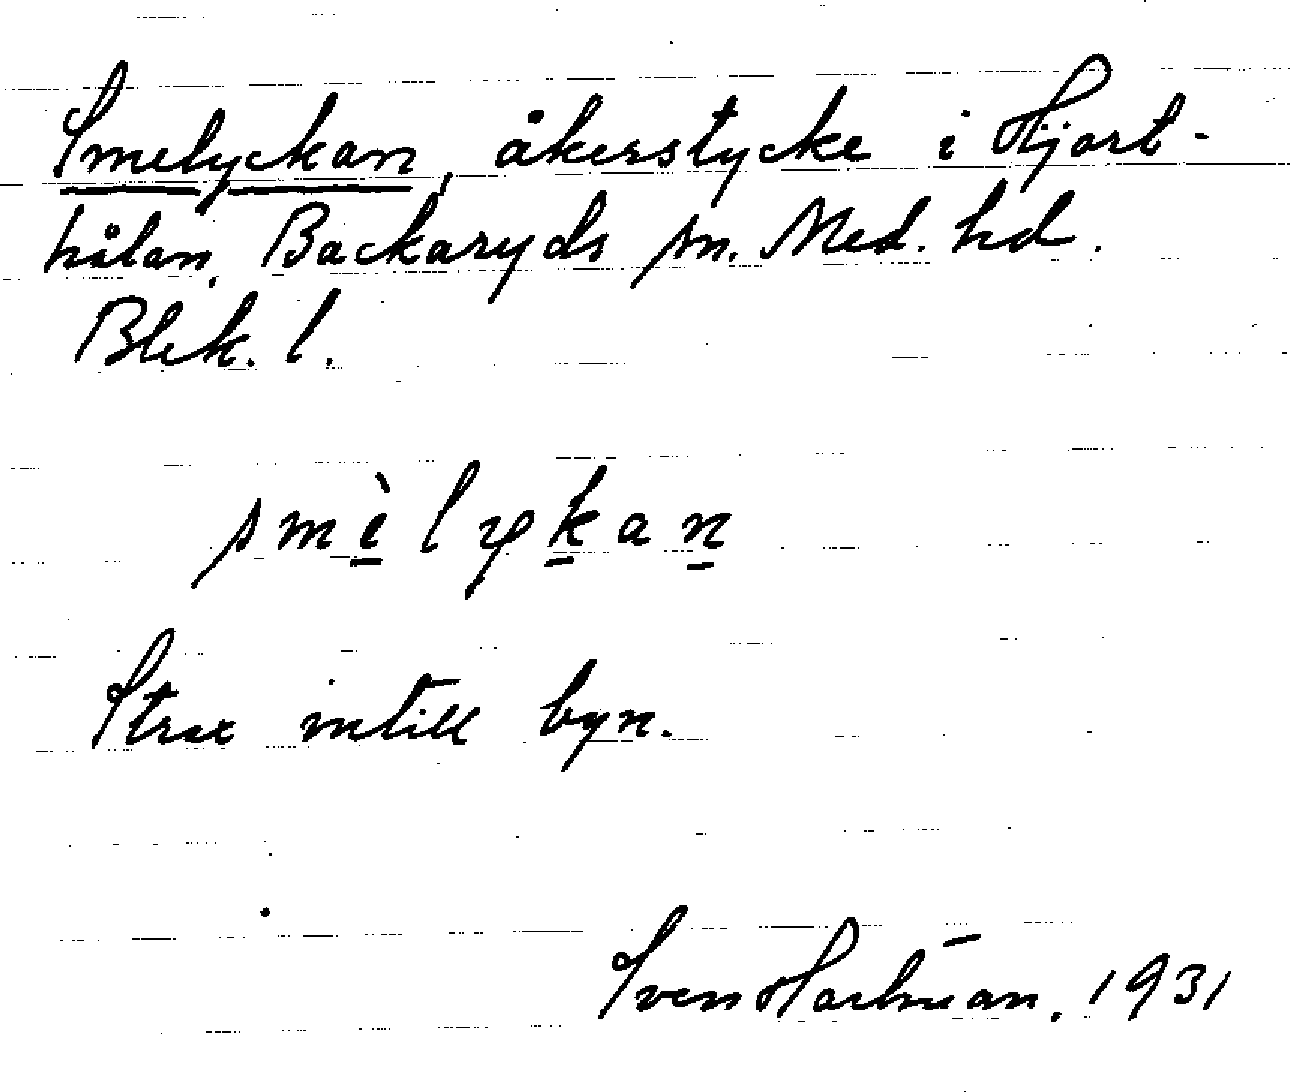 Smelyckan, åkerstycke i Hjort-
hålan, Backaryds sn. Med. hd.
Blek. l.
smèlykan
Strax intill byn.
Sven Hartman. 1931